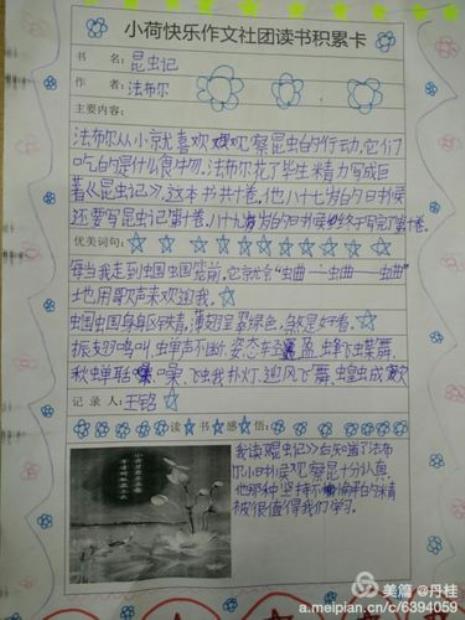 小荷快乐作文社团读书积累卡
书 名:昆虫记
作 者:法布尔
主要内容:
法布尔从小就喜欢观察昆虫的行动,它们
吃的是什么食物.法布尔花了毕生精力写成巨
著《昆虫记》,这本书共十卷.他八十七岁的时候
还要写昆虫记第十卷.八十九岁的时候终于写完了第十卷.
优美词句:
每当我走到蝈蝈笼前,它就会“蛐——蛐——蛐”
地用歌声来欢迎我。
蝈蝈身躯铁精,薄翅呈翠绿色,煞是好看。
振翅鸣叫,蝉声不断,姿态轻盈,蜂飞蝶舞,
秋蝉聒噪,飞虫我扑灯,迎风飞舞,蝗虫成灾
记 录 人:王铭
读 书 感 悟:
我读《昆虫记》后知道了法布
尔小时候观察昆虫十分认真,
他那种坚持不懈的精
被很值得我们学习。
美篇 @丹桂
a.meipian.cn/c/6394059